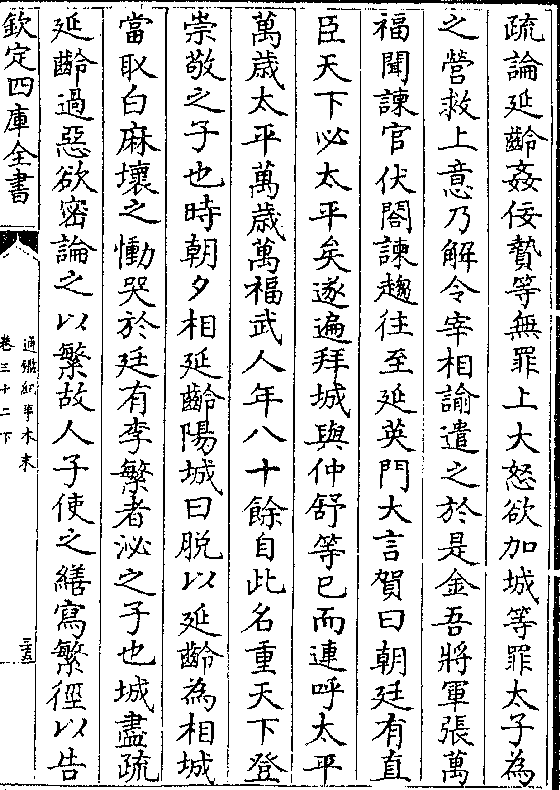 疏論延齡姦佞贄等無罪上大怒欲加城等罪太子為
之營救上意乃解令宰相諭遣之於是金吾將軍張萬
福聞諫官伏閤諫趨往至延英門大言賀曰朝廷有直
臣天下必太平矣遂遍拜城與仲舒等已而連呼太平
萬歲太平萬歲萬福武人年八十餘自此名重天下登
崇敬之子也時朝夕相延齡陽城曰脫以延齡為相城
當取白麻壞之慟哭於廷有李繁者泌之子也城盡疏
延齡過惡欲密論之以繁故人子使之繕寫繁徑以告
欽定四庫全書
通鑑紀事本末
卷三十二下
三十五